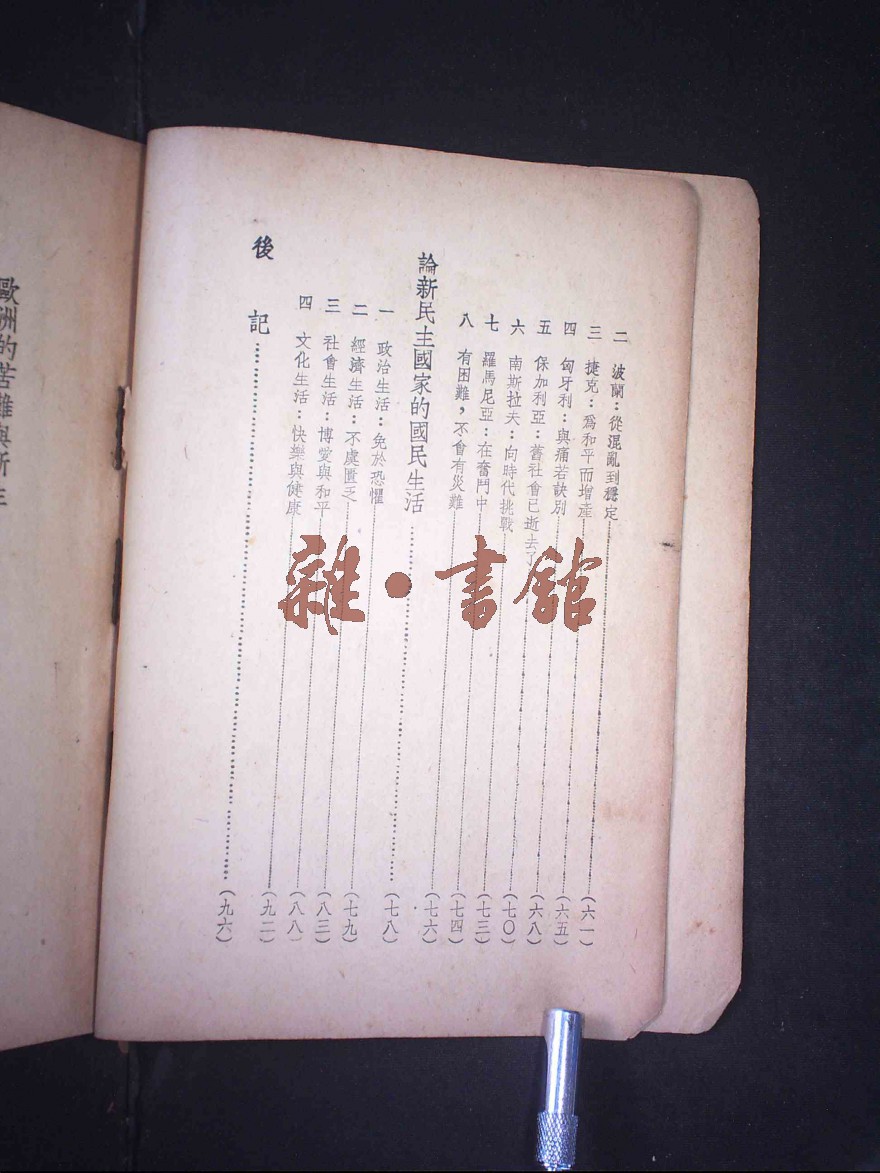 二 波蘭：從混亂到穩定……（六一）
三 捷克：爲和平而增產……（六五）
四 匈牙利：與痛若訣別……（六八）
五 保加利亞：舊社會已逝去了……（七〇）
六 南斯拉夫：向時代挑戰……（七三）
七 羅馬尼亞：在奮鬥中……（七四）
八 有困難，不會有災難……（七六）
論新民主國家的國民生活……（七八）
一 政治生活：免於恐懼……（七九）
二 經濟生活：不虞匱乏……（八三）
三 社會生活：博愛與和平……（八八）
四 文化生活：快樂與健康……（九二）
後 記……（九六）
歐洲的苦難與新生
雜·書館